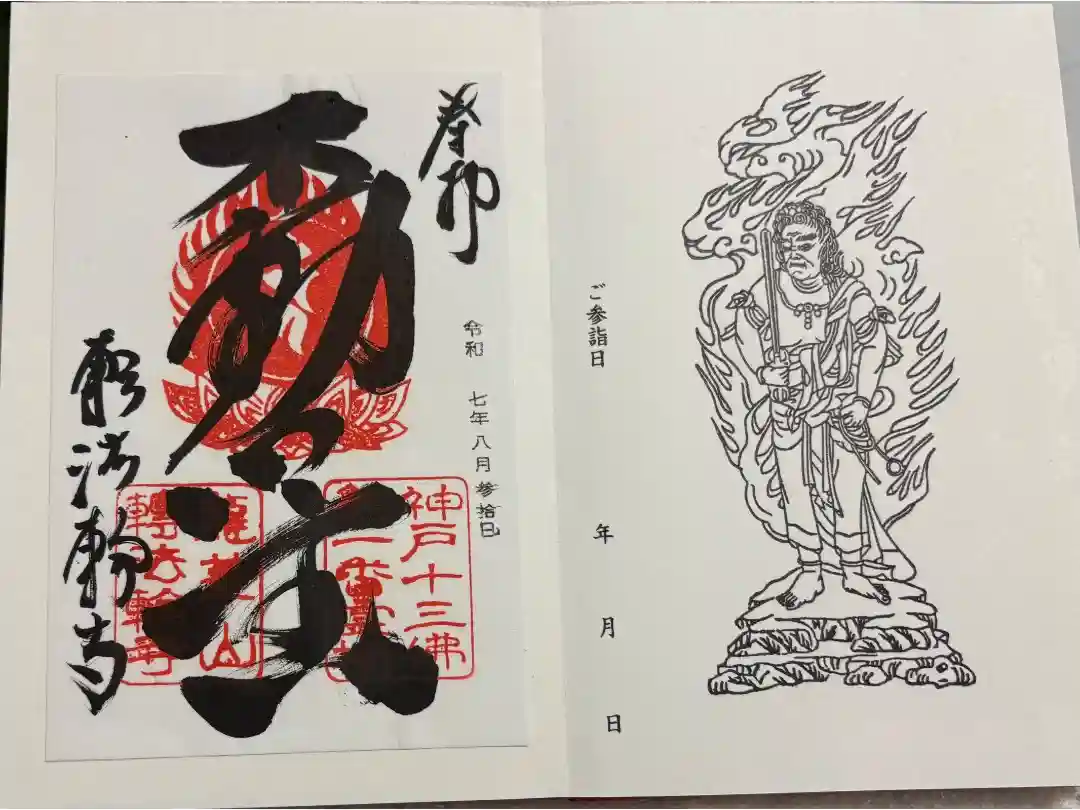 ご参詣日
年 月 日
奉拝
令和 七年八月参拾日
不動
神戸十三佛
第一番霊場
龍華山
轉法輪寺
転法輪寺